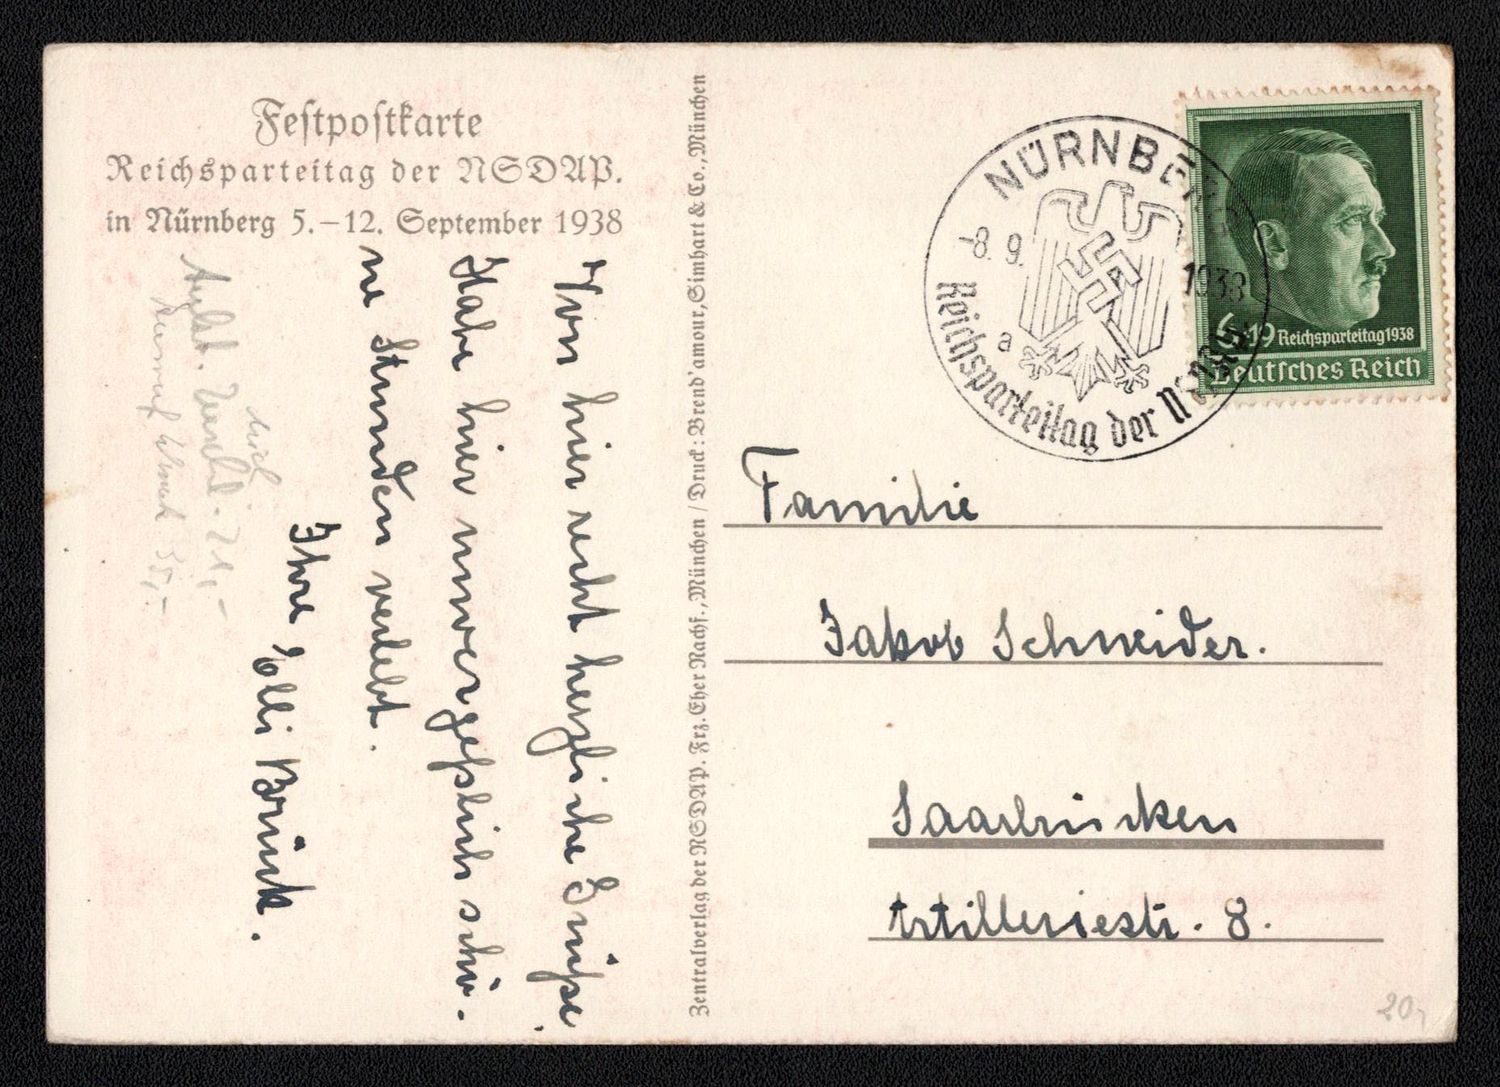 Festpostkarte
Reichsparteitag der NSDAP.
in Nürnberg 5.–12. September 1938
Von hier recht herzliche Grüße.
Habe hier unvergeßlich schö-
ne Stunden verlebt.
Ihre Elli Brück.
21,-
35,-
Zentralverlag der NSDAP. Frz. Eher Nachf., München / Druck: Brend'amour, Simhart & Co., München
NÜRNBERG
-8.9. 1938
a
Reichsparteitag der NSDAP
6+19 Reichsparteitag 1938
Deutsches Reich
Familie
Jakob Schneider.
Saarbrücken
Artilleriestr. 8.
20,-